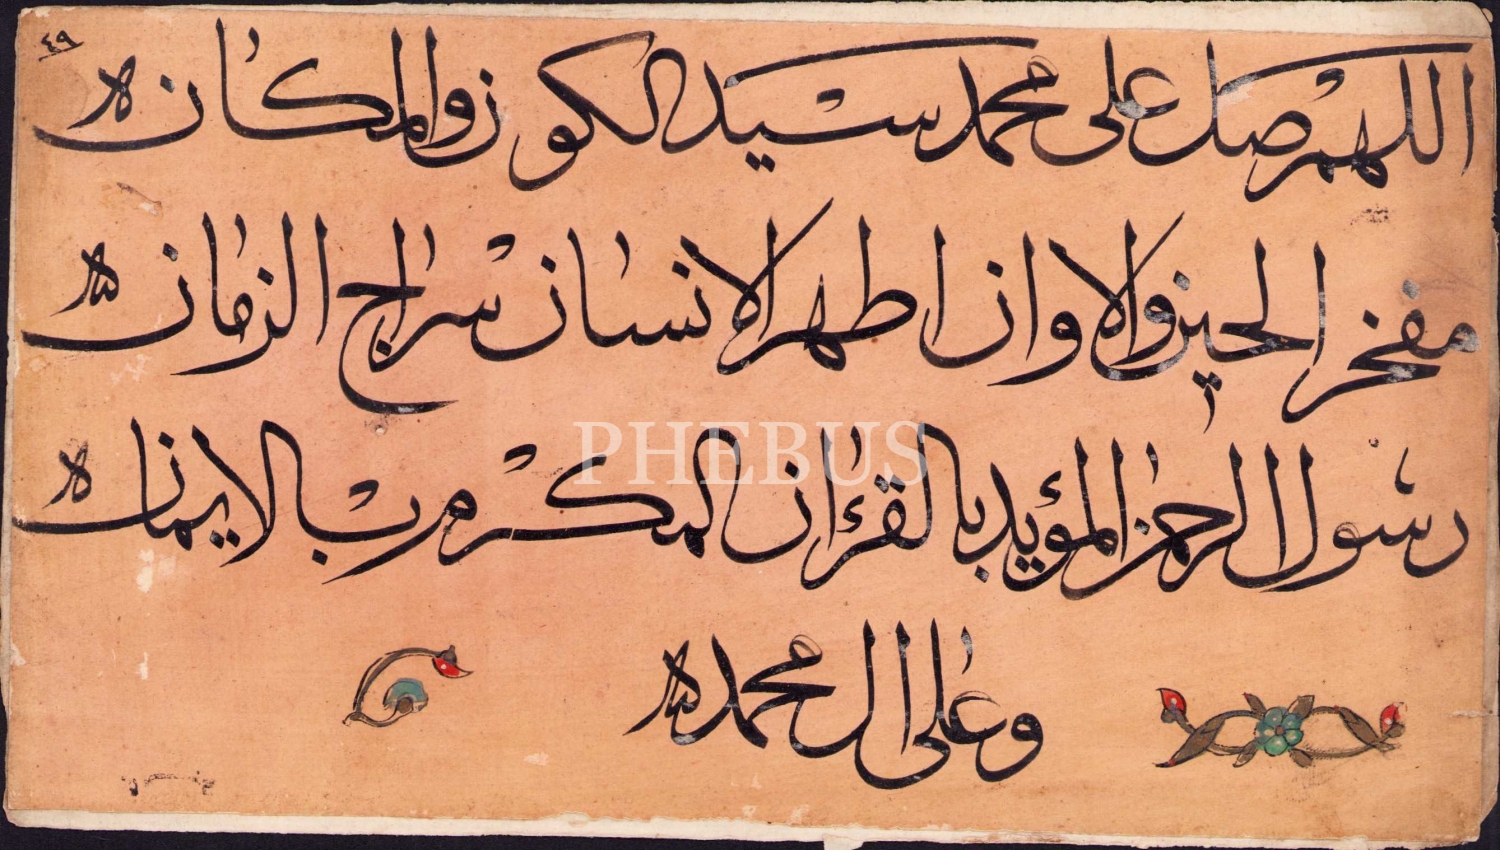 ٤٩
اللهم صل على محمد سيد الكون والمكان
مفخر الحين والاوان اطهر الانسان سراج الزمان
رسول الرحمن المؤيد بالقرءان المكرم رب الايمان
PHEBUS
وعلى ال محمد